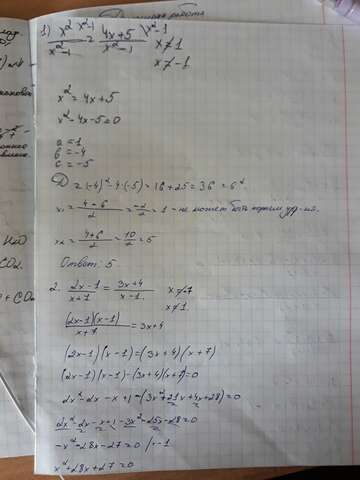 1) x² \x²-1 / x²-1 = 4x+5 / x²-1 \x²-1 x≠1
x≠-1
x² = 4x+5
x²-4x-5=0
a=1
b=-4
c=-5
D=(-4)²-4·(-5)=16+25=36=6²
x₁= 4-6 / 2 = -2 / 2 = 1 - не может быть корнем ур-ния.
x₂= 4+6 / 2 = 10 / 2 = 5
Ответ: 5.
2. 2x-1 / x+7 = 3x+4 / x-1. x≠-7
x≠1.
(2x-1)(x-1) / x+7 = 3x+4
(2x-1)(x-1)=(3x+4)(x+7)
(2x-1)(x-1)-(3x+4)(x+7)=0
2x²-2x-x+1-(3x²+21x+4x+28)=0
2x²-2x-x+1-3x²-25x-28=0
-x²-28x-27=0 /·-1
x²+28x+27=0
H₂O
CO₂.
+ CO₂